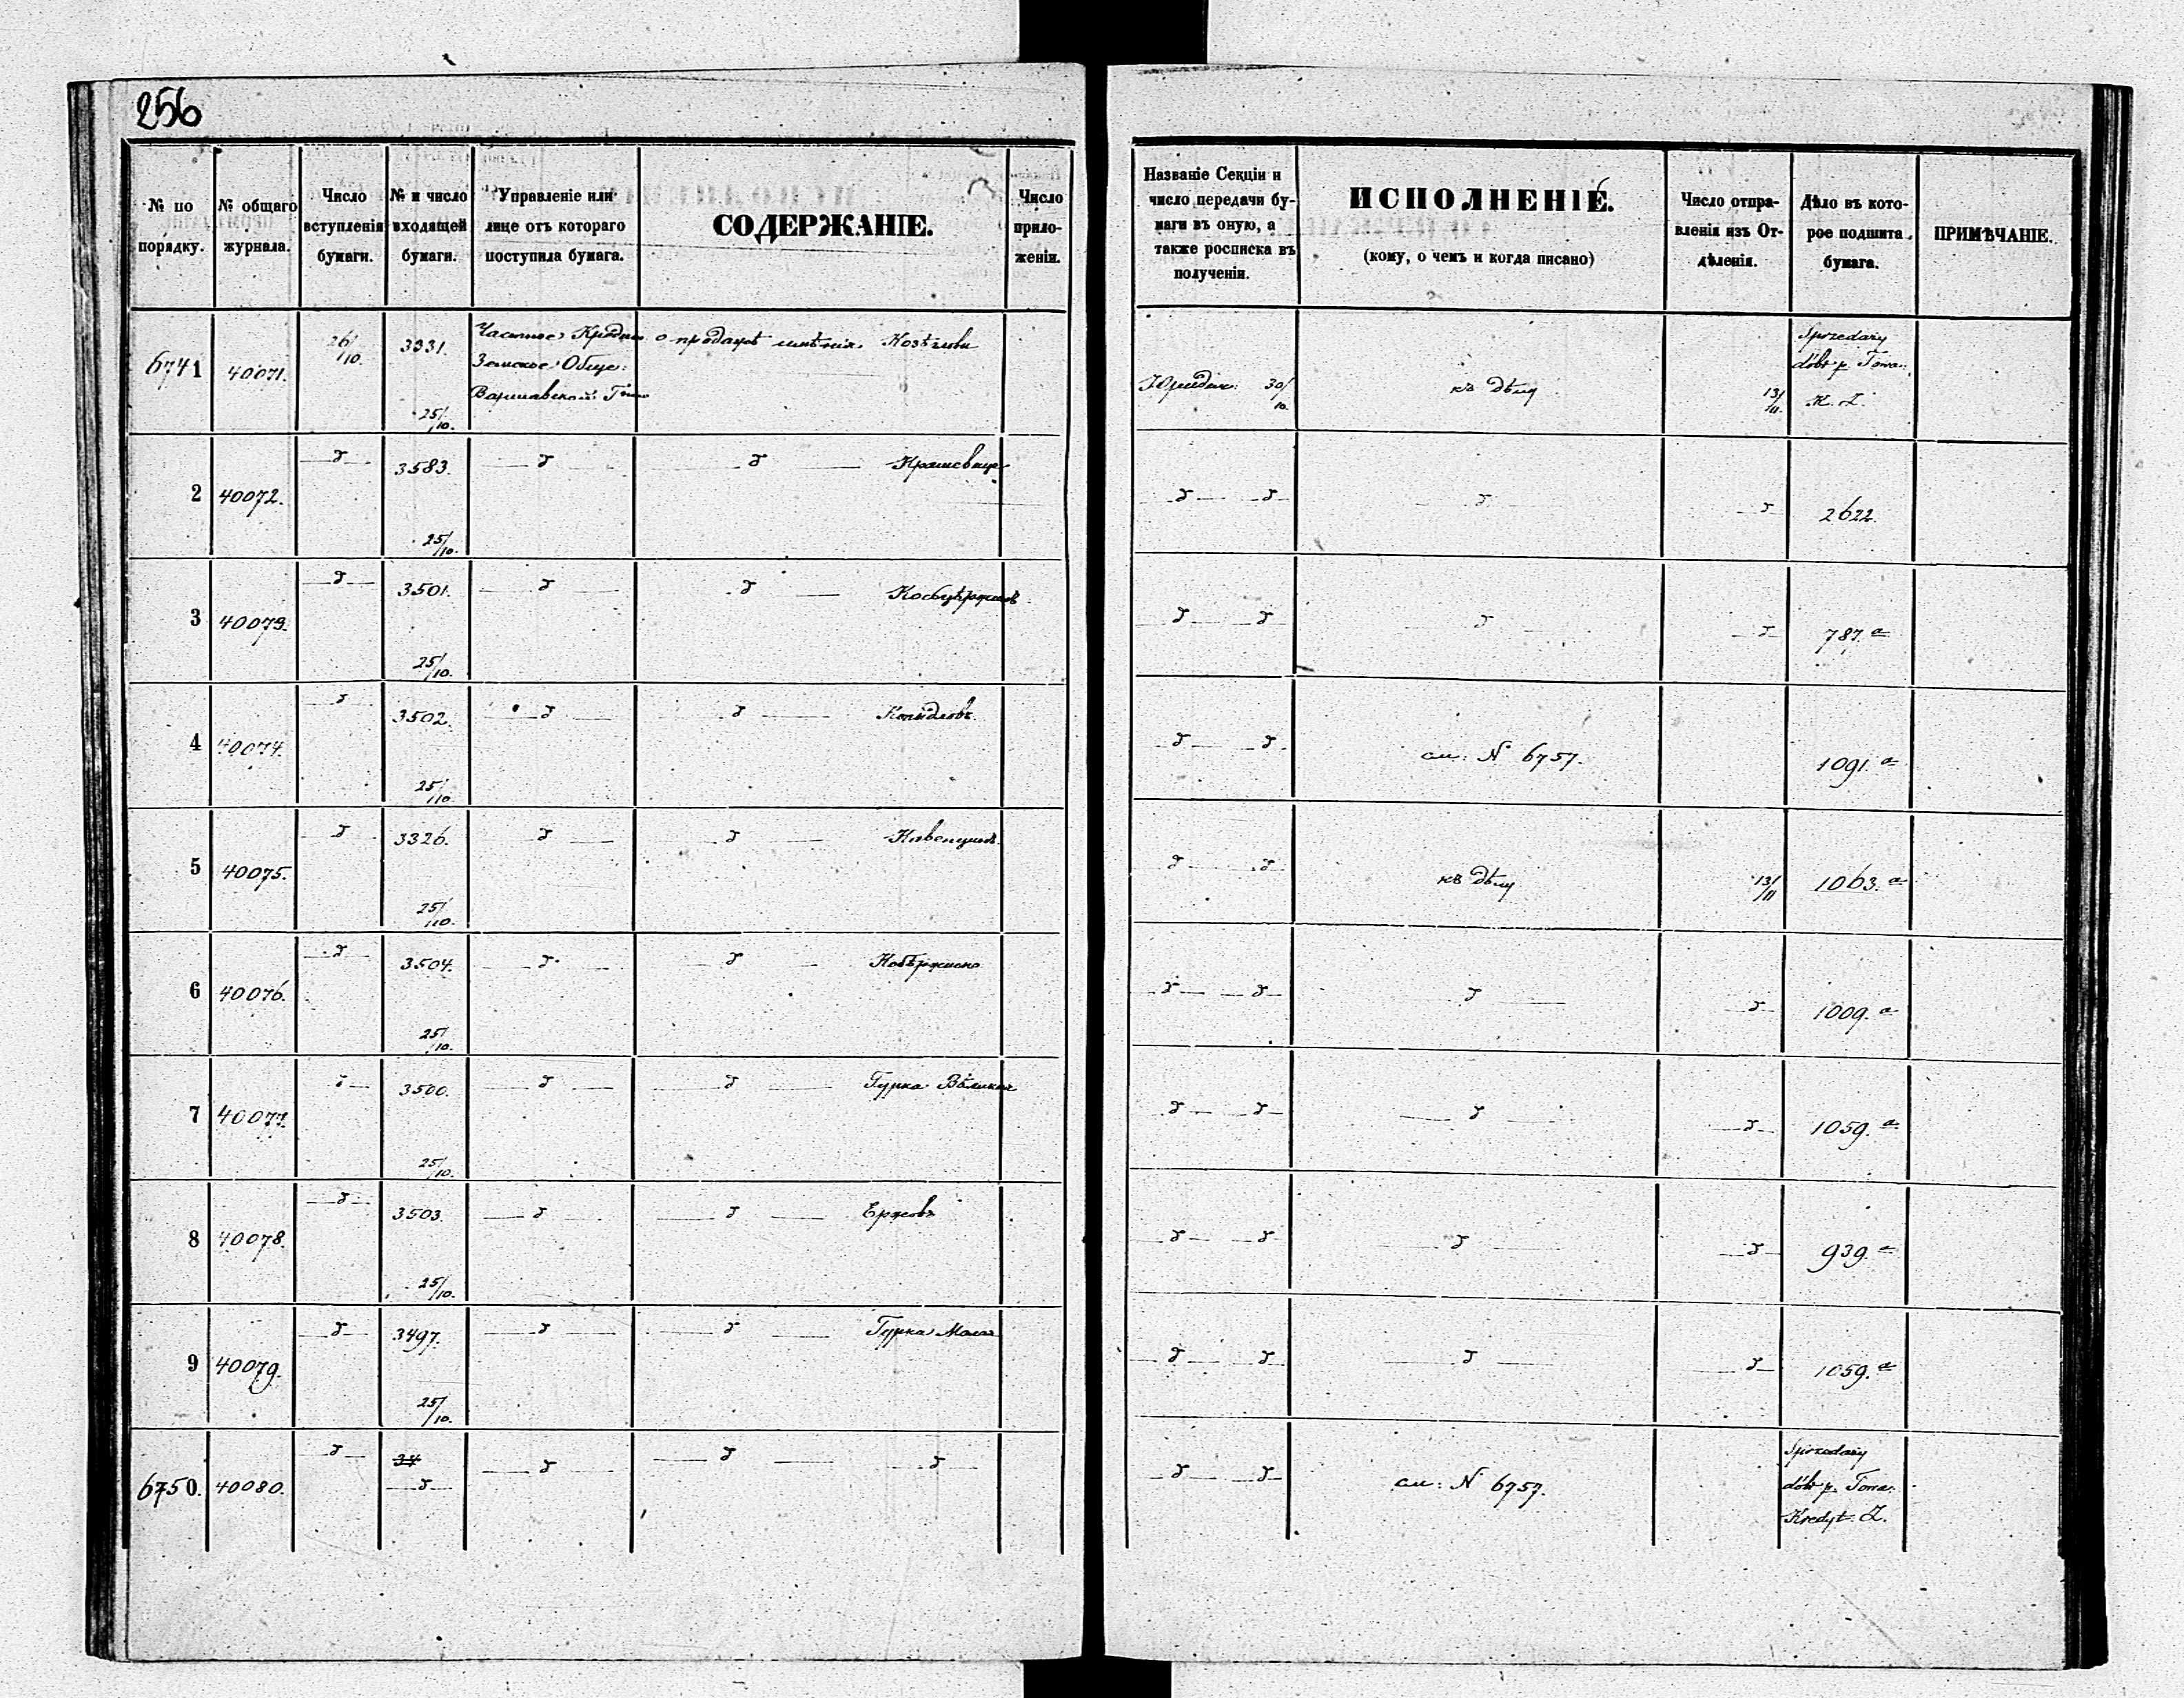 256
№ по порядку.
№ общаго журнала.
Число вступленія бумаги.
№ и число входящей бумаги.
Управленіе или лице отъ котораго поступила бумага.
СОДЕРЖАНІЕ.
Число приложеніи.
Названіе Секціи и число передачи бумаги въ оную, а также росписка въ полученіи.
ИСПОЛНЕНІЕ.
(кому, о чемъ и когда писано)
Число отправленія изъ Отдѣленія.
Дѣло въ которое подшита бумага.
ПРИМѢЧАНІЕ.
6741 40071. 26/10. 3331. 25/10.
Земское Обще:
Варшавской
о продажѣ имѣнія
30/10. къ дѣлу 13/11.
Sprzedaży
dóbr p. Towa:
K. Z.
2 40072. 3583. 25/10. 2622.
3 40073. 3501. 25/10. 787. a
4 40074. 3502. 25/10. см: N 6757. 1091. a
5 40075. 3326. 25/10. къ дѣлу 13/11 1063. a
6 40076. 3504. 25/10. 1009. a
7 40077. 3500. 25/10. Гурка Вѣликая 1059. a
8 40078. 3503. 25/10. Ержовъ 939. a
9 40079. 3497. 25/10. Гурка Малая 1059. a
6750. 40080. 34 см: N 6757.
Sprzedaży
dóbr p. Towa:
Kredyt. Z.